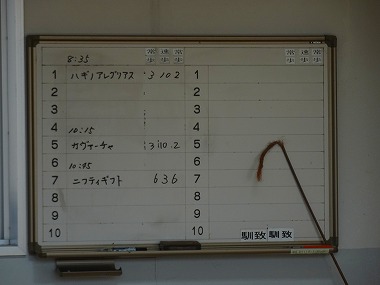 常歩 速歩 常歩 常歩 速歩 常歩
8:35
1 ハギノアレグリアス 3 10 2 1
2 2
3 3
4 10:15 4
5 ガヴァーチャ 3 10 2 5
6 10:45 6
7 ニフティギフト 6 3 6 7
8 8
9 9
10 馴致 馴致 10